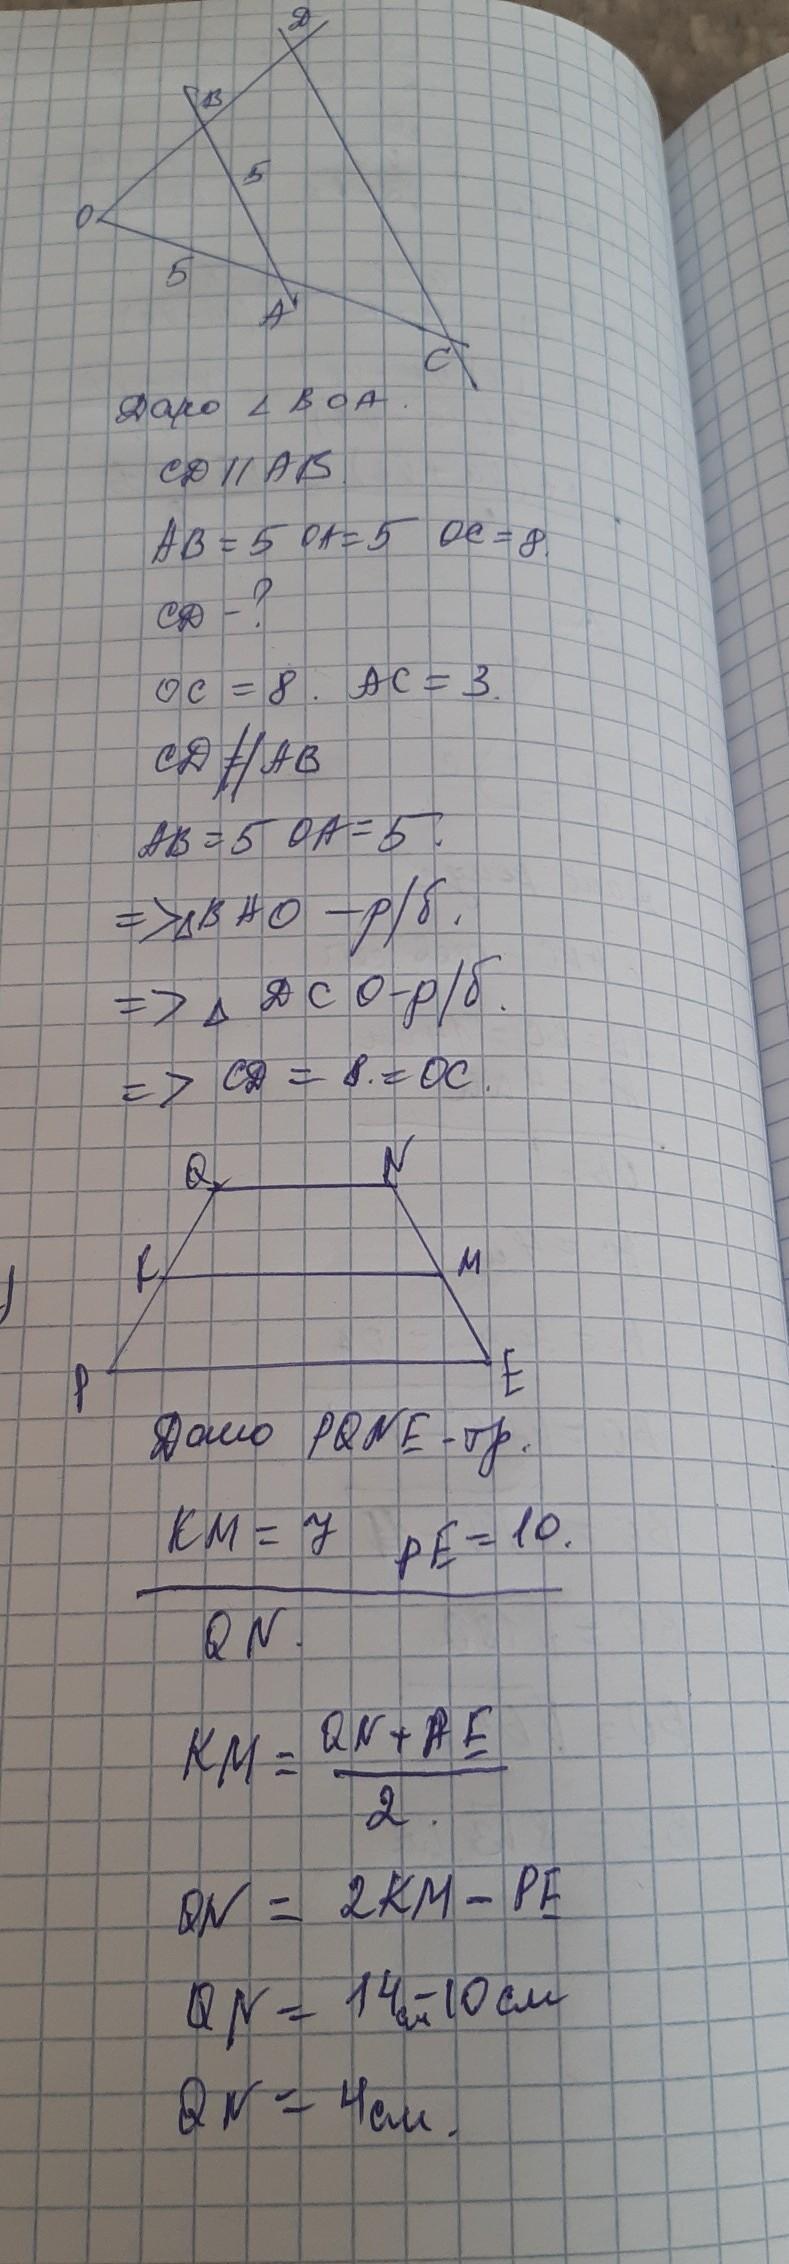 D
B
5
O
5
A
C
Дано ∠ BOA.
CD // AB
AB = 5 OA = 5 OC = 8.
CD - ?
OC = 8. AC = 3.
CD // AB
AB = 5 OA = 5.
=> △BAO - р/б.
=> △ DCO - р/б.
=> CD = 8. = OC.
Q N
K M
P E
Дано PQNE - тр.
KM = 7 PE = 10.
QN.
KM = QN + PE / 2.
QN = 2KM - PE
QN = 14см - 10 см
QN = 4 см.